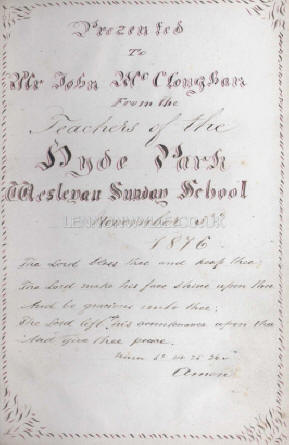 Presented
To
Mr John Mc Cloughan
From the
Teachers of the
Hyde Park
Wesleyan Sunday School
November
1876
The Lord bless thee and keep thee;
The Lord make his face shine upon thee
And be gracious unto thee;
The Lord lift up his countenance upon thee
And give thee peace.
Num 6. 24 25 26
Amen